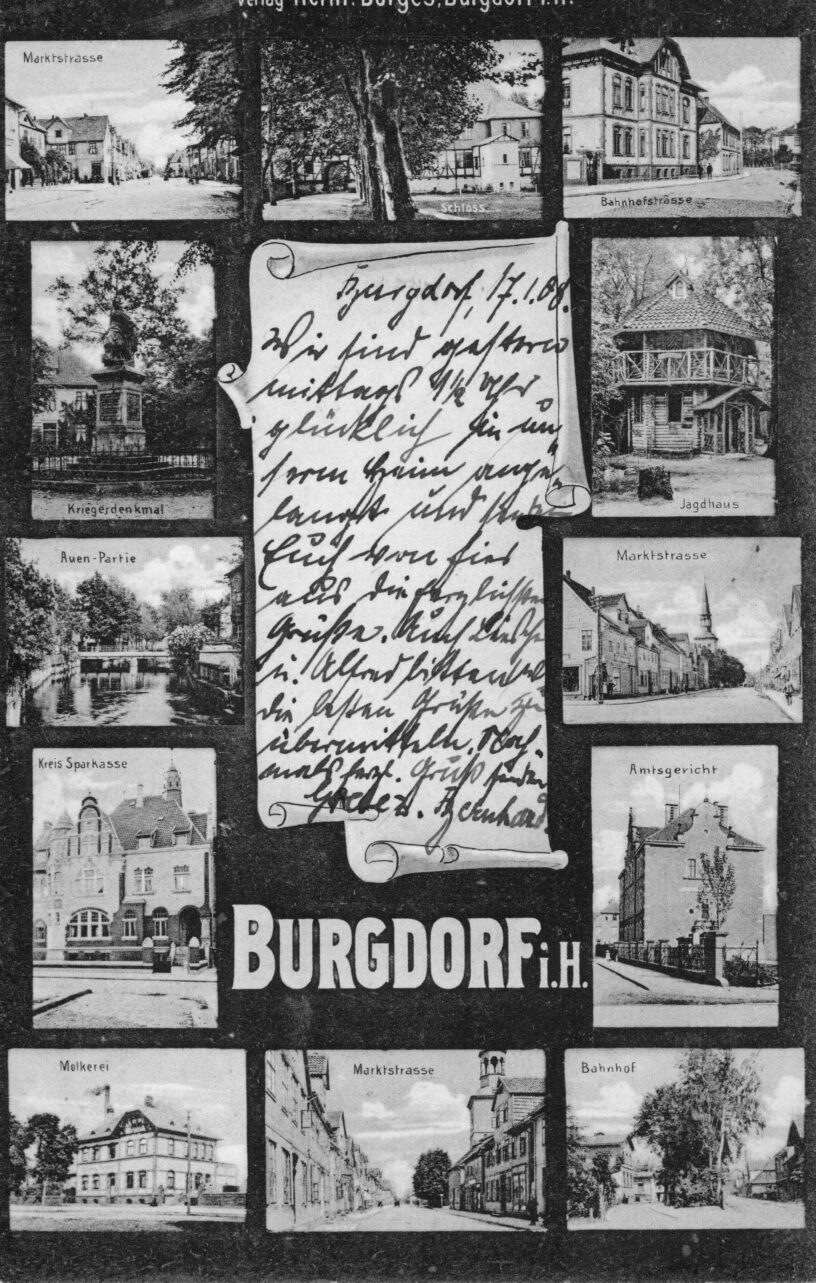 Verlag Herm. Börges, Burgdorf i. H.
Marktstrasse
Schloss
Bahnhofstrasse
Kriegerdenkmal
Jagdhaus
Burgdorf, 17.1.08.
Wir sind gestern
mittags 1½ Uhr
glücklich in un
serm Heim ange
langt und senden
Euch von hier
aus die herzlichsten
Grüße. Auch Lieschen
u. Alfred bitten
die besten Grüße zu
übermitteln. Noch-
mals herzl. Gruß senden
Bernhard.
Auen-Partie
Marktstrasse
Kreis Sparkasse
Amtsgericht
BURGDORF i.H.
Molkerei
Marktstrasse
Bahnhof